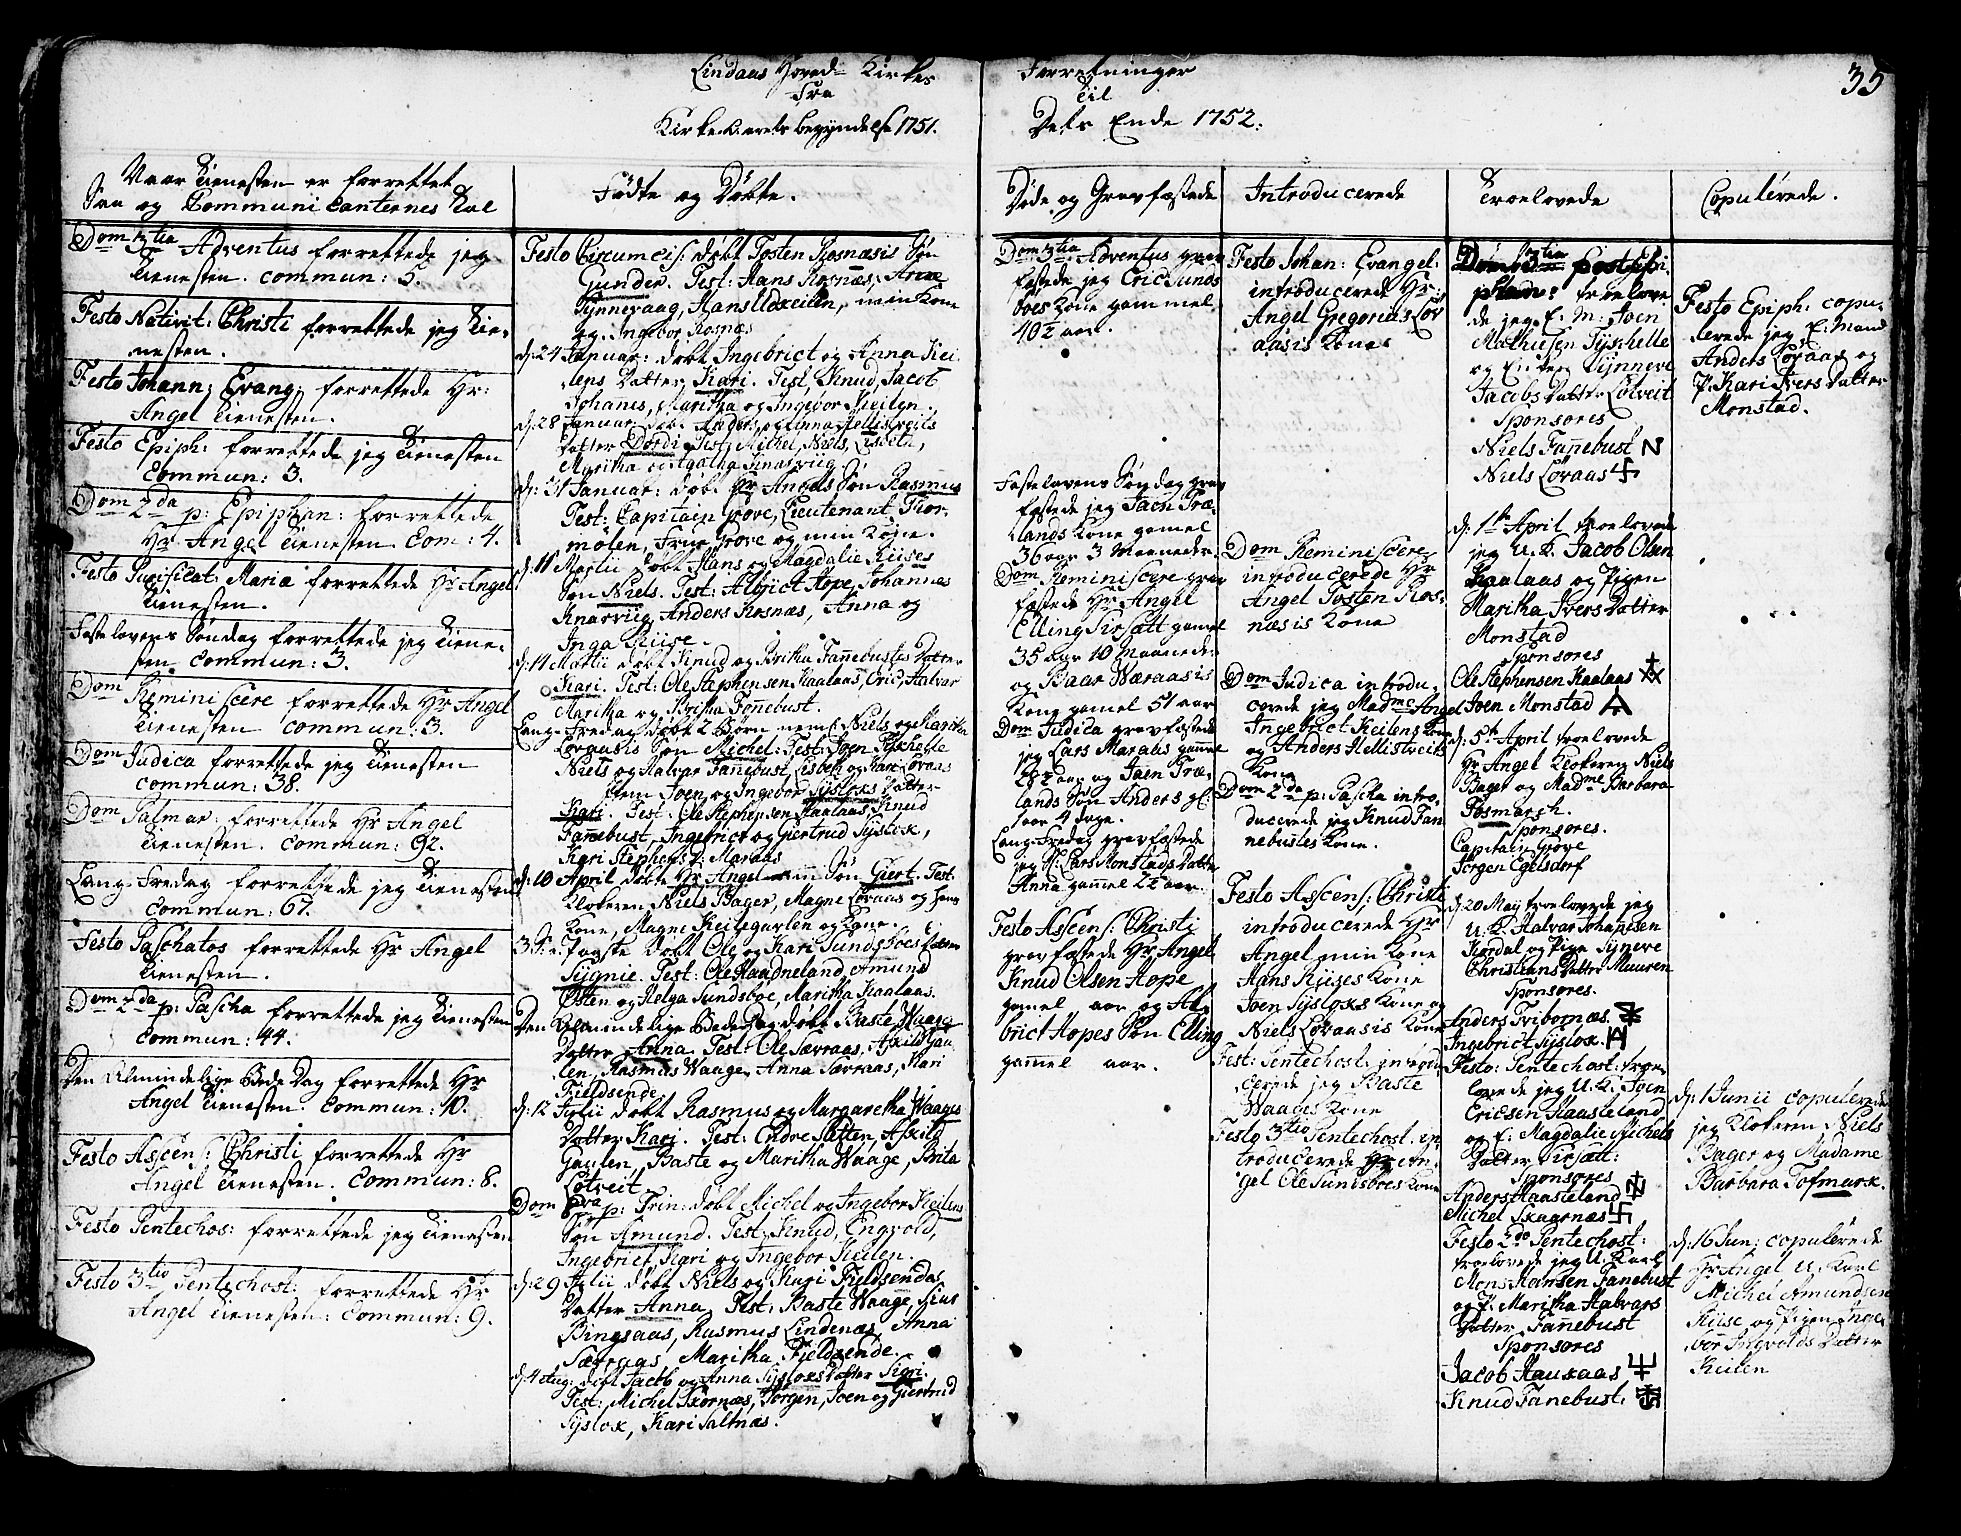 35
Lindaas Hoved Kirkes Forretninger
Fra Til
Kirke Aarets begyndelse 1751. Dets Ende 1752.
Naar Tienesten er forrettet
Saa og Communicanternes Tal
Dom 3tia Adventus forrettede jeg
Tienesten. Commun: 5.
Festo Nativit: Christi forrettede jeg Tie-
nesten.
Festo Johann: Evang: forrettede Hr:
Angel Tienesten.
Festo Epiph: forrettede jeg Tienesten
Commun: 3.
Dom 2da p: Epiphan: forrettede
Hr Angel Tienesten Com: 4.
Festo Purificat: Maria forrettede Hr Angel
Tienesten.
Fastelavens Søndag forrettede jeg Tiene-
sten. Commun: 3.
Dom Reminiscere forrettede Hr Angel
Tienesten commun: 3.
Dom Judica forrettede jeg Tienesten
commun: 38.
Dom Palmar: forrettede Hr Angel
Tienesten. Commun: 92.
Lang-Fredag forrettede jeg Tienesten
Commun: 67.
Festo Paschatos forrettede Hr Angel
Tienesten.
Dom 2da p: Pascha forrettede jeg Tienesten
Commun: 44.
Den Almindelige Bede Dag forrettede Hr
Angel Tienesten. Commun: 10.
Festo Ascens: Christi forrettede Hr
Angel Tienesten. Commun: 8.
Festo Pentechos: forrettede jeg Tienesten
Festo 3tio Pentechost: forrettede Hr
Angel Tienesten: Commun: 9.
Fødte og Døbte.
Festo Circumcis: døbt Tosten Rosnæsis Søn
Gunder. Test: Hans Rosnæs, Arne
Synnevaag, Hans, min Kone
og Ingebor Rosnæs
d: 24 Januar: døbt Ingebrict og Anna Kei-
lens Datter Kari. Test, Knud, Jacob
Johanes, Maritha og Ingebor Keilen.
d: 28 Januar: døbt Anders og Anna Hellistveits
Datter Dordi Test: Michel, Niels, Lisbeth,
Maritha og Agatha
d: 31 Januar: døbt Hr Angels Søn Rasmus
Test: Capitain Grove, Lieutenant Thor-
molen, Frue Grove og min Kone.
d: 11 Martii døbt Hans og Magdalie Riises
Søn Niels. Test: Albrict Hope, Johannes
Knarviig, Anders Rosnæs, Anna og
Inga Riise.
d: 14 Martii døbt Knud og Britha Fanebustes Datter
Kari. Test: Ole Stephensen Kaalaas, Eric, Halvar
Maritha og Britha Fonnebust.
Lang-Fredag døbt 2 Børn neml: Niels og Maritha
Lovaasis Søn Michel: Test: Joen Tyschelle
Niels og Halvar Fanebust, Lisbeth og Kari Lovaas
Item Joen og Ingebor Sysloxs Datter
Kari. Test: Ole Stephensen Kaalaas, Knud
Fanebust, Ingebrict og Giertrud Syslox,
Kari Stephens D: Maraas
d: 10 April døbt Hr Angel min Søn Giert. Test:
Klokeren Niels Bager, Magne Lovaas og hans
Kone, Magne Keilegavlen og Kone.
3 S: Paaske døbt Ole og Kari Sundsboes Datter
Sygnie. Test: Ole Haadneland, Amund
Østen og Helga Sundsboe, Maritha Kaalaas.
Den Almindelige Bede Dag døbt Baste Waages
Datter Anna. Test: Ole Særraas, Askild Gau-
len, Rasmus Waage, Anna Særraas, Kari
Fieldsende.
d: 12 Julii døbt Rasmus og Margaretha Waages
Datter Kari. Test: Endre Sletten, Askild
Gaulen, Baste og Maritha Waage, Brita
Lotveit
Dom p: Trin: døbt Michel og Ingebor Keilens
Søn Amund. Test: Knud, Engvold,
Ingebrict, Kari og Ingebor Keilen.
d: 29 Julii døbt Niels og Kari Fieldsendas
Datter Anna. Test: Baste Waage, Nils
Bingsaas, Rasmus Lindenæs, Anna
Særraas, Maritha Fieldsende.
d: 4 Aug: døbt Jacob og Anna Syslox Datter Sigri.
Test: Michel Skornæs, Jorgen, Joen og Giertrud
Syslox, Kari Saltnæs.
Døde og Gravfæstede
Dom 3tia Adventus grav
fæstede jeg Eric Sunds
boes Kone gammel
40½ aar.
Fastelavens Søndag grav
fæstede jeg Jaen Træ-
lands Kone gamel
36 aar 3 Maaneder.
Dom Reminiscere grav
fæstede Hr Angel
Elling Sirsætt gamel
35 aar 10 Maaneder
og Baar Wæraasis
Kone gamel 51 aar
Dom Judica gravfæstede
jeg Lars Maraas gamel
aar og Jaen Træ-
lands Søn Anders gl:
1 aar 4 dage.
Lang-Fredag gravfæstede
jeg Lars Monstads Datter
Anna gamel 2½ aar.
Festo Ascens: Christi
gravfæstede Hr Angel
Knud Olsen Hope
gamel aar og Al-
brict Hopes Søn Elling
gamel aar.
Introducerede
Festo Johan: Evangel:
introducerede Hr:
Angel Gregorius Lov
aasis Kone
Dom Reminiscere
introducerede Hr
Angel Tosten Ros-
næsis Kone
Dom Judica introdu-
cerede jeg Madme Angel
Ingebrict Keilens Kone
og Anders Hellistveits
Kone
Dom 2da p: Pascha intro-
ducerede jeg Knud Fan-
nebustes Kone.
Festo Ascens: Christi
introducerede Hr
Angel min Kone
Hans Riises Kone
Joen Syslox Kone og
Niels Lovaasis Kone
Fest: Pentechost: introdu
cerede jeg Baste
Waages Kone
Festo 3tio Pentechost: in
troducerede Hr An-
gel Ole Sundsboes Kone
Troelovede
Dom 3tia post Epi
phan: troelove
de jeg E: M: Joen
Mathiesen Tyschelle
og Enken Synneve
Jacobs Datter Lotveit
Sponsores
Niels Fanebust
Niels Lovaas
d: 1te April troelovede
jeg U. K. Jacob Olsen
Kaalaas og Pigen
Maritha Ivers Datter
Monstad
Sponsores
Ole Stephensen Kaalaas
Joen Monstad
d: 5te April troelovede
Hr Angel Klokeren Niels
Bager og Madme Barbara
Tosmarsk.
Sponsores.
Capitain Grove
Jørgen Egelsdorf
d: 20 Maij troelovede jeg
U. K. Halvar Johannesen
Kordal og Pige Synneve
Christians Datter Muuren
Sponsores.
Anders Fribornæs.
Ingebrict Syslox.
Festo: Pentechost: troe-
lovede jeg U. K. Joen
Ericsen Haasteland
og E: Magdalie Michels
Datter Sirsætt:
Sponsores
Anders Haasteland
Michel Skaarnæs
Festo 2do Pentechost:
troelovede jeg U. Karl
Mons Hansen Fanebust
og P. Maritha Halvars
Datter Fanebust
Sponsores
Jacob Hauxaas
Knud Fanebust.
Copulerede.
Festo Epiph: copu-
lerede jeg E: Mand
Anders Lovaas og
P. Kari Ivers Datter
Monstad.
d: 1 Junii copulerede
jeg Klokeren Niels
Bager og Madame
Barbara Tofmark.
d: 16 Jun: copulerede
Hr Angel U. Karl
Michel Amundsen
Riise og Pigen Inge-
bor Ingvolds Datter
Keilen